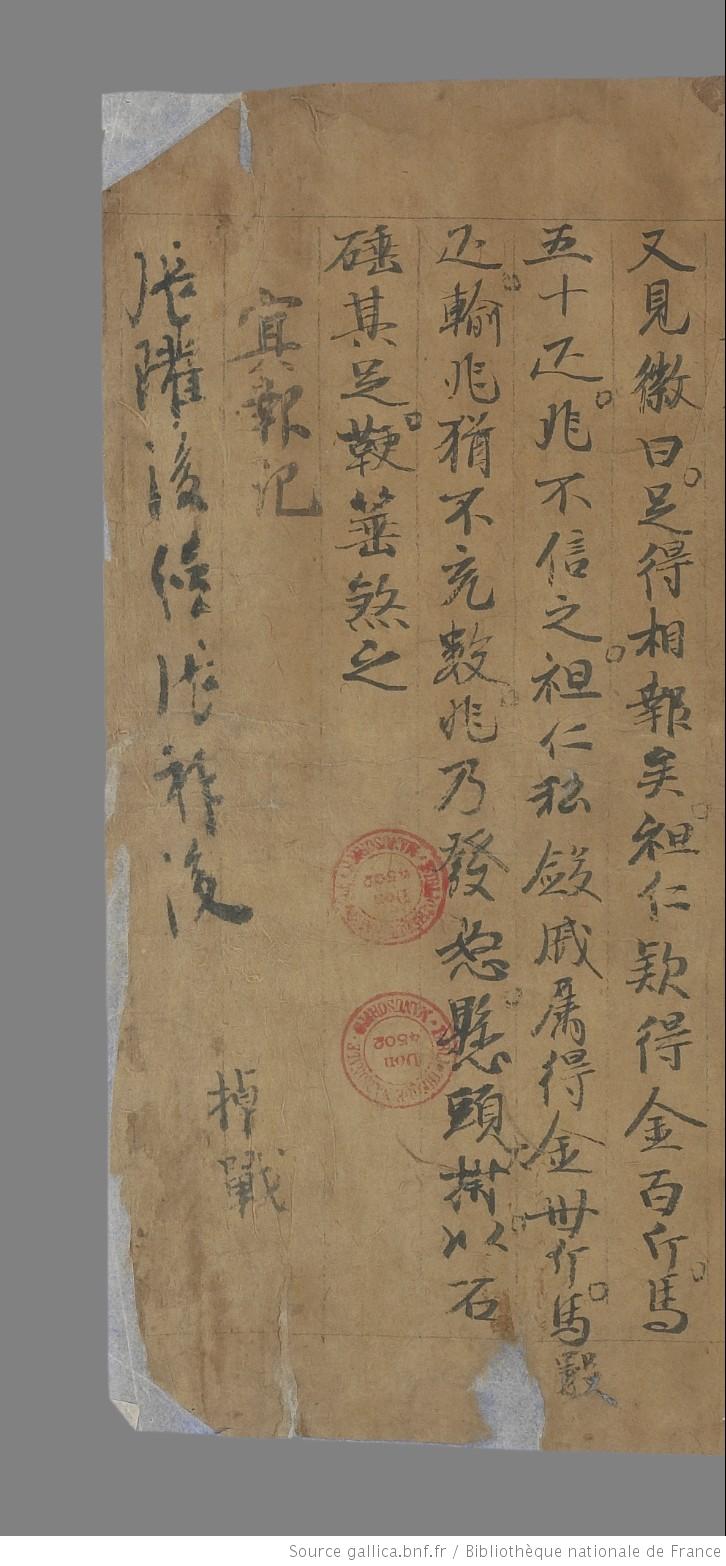 又見徽曰足得相報矣祖仁款得金百斤馬
五十疋兆不信之祖仁私斂戚属得金卅斤馬
疋輸兆猶不充數兆乃發怒懸頭掛以石
硾其足鞕蓥煞之
冥報記
張躍後續張祚後
掉戰
Don 4502
Don 4502
Source gallica.bnf.fr / Bibliothèque nationale de France